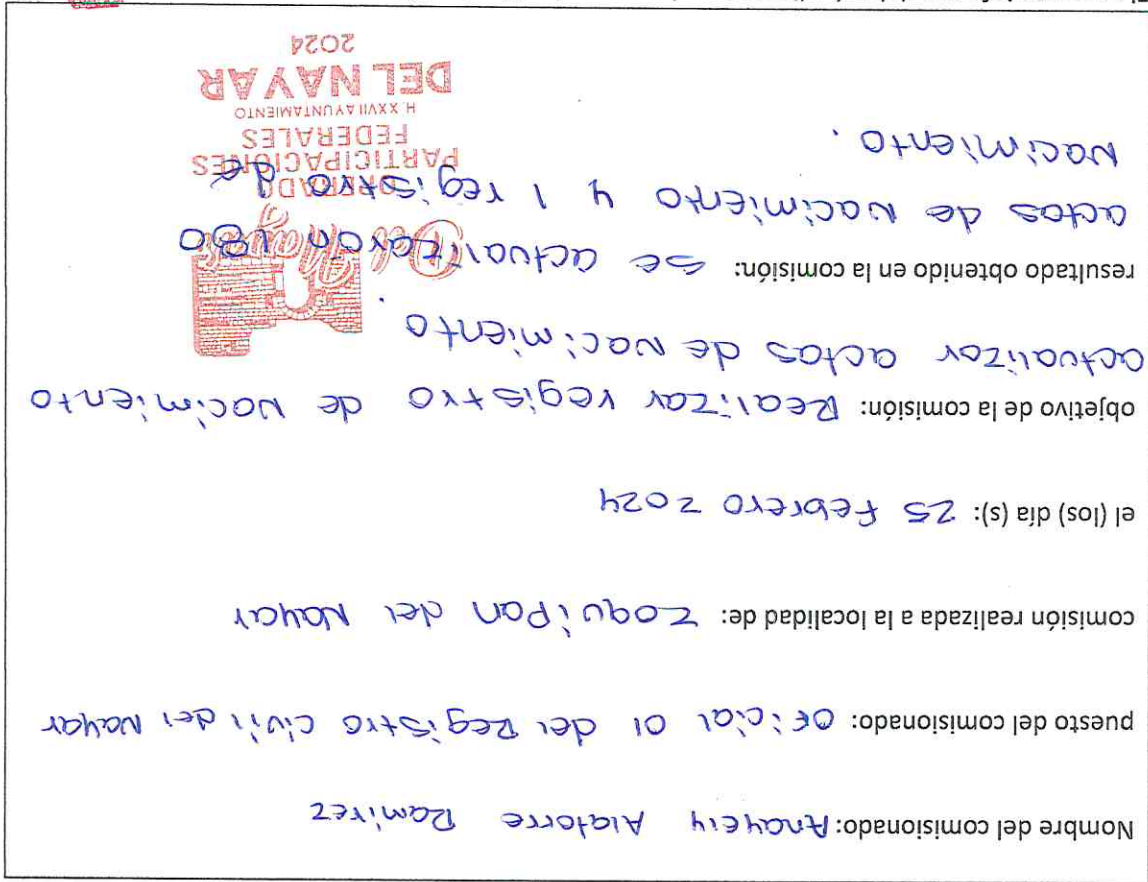 Nombre del comisionado: Anayely Alatorre Ramirez
puesto del comisionado: Oficial 01 del Registro civil del Nayar
comisión realizada a la localidad de: Zoquipan del Nayar
el (los) día (s): 25 Febrero 2024
objetivo de la comisión: Realizar registro de Nacimiento
actualizar actas de Nacimiento.
resultado obtenido en la comisión: se actualizarón 180
actas de Nacimiento y 1 registro de
Nacimiento.
Del Nayar
OPERADO
PARTICIPACIONES
FEDERALES
H. XXVII AYUNTAMIENTO
DEL NAYAR
2024